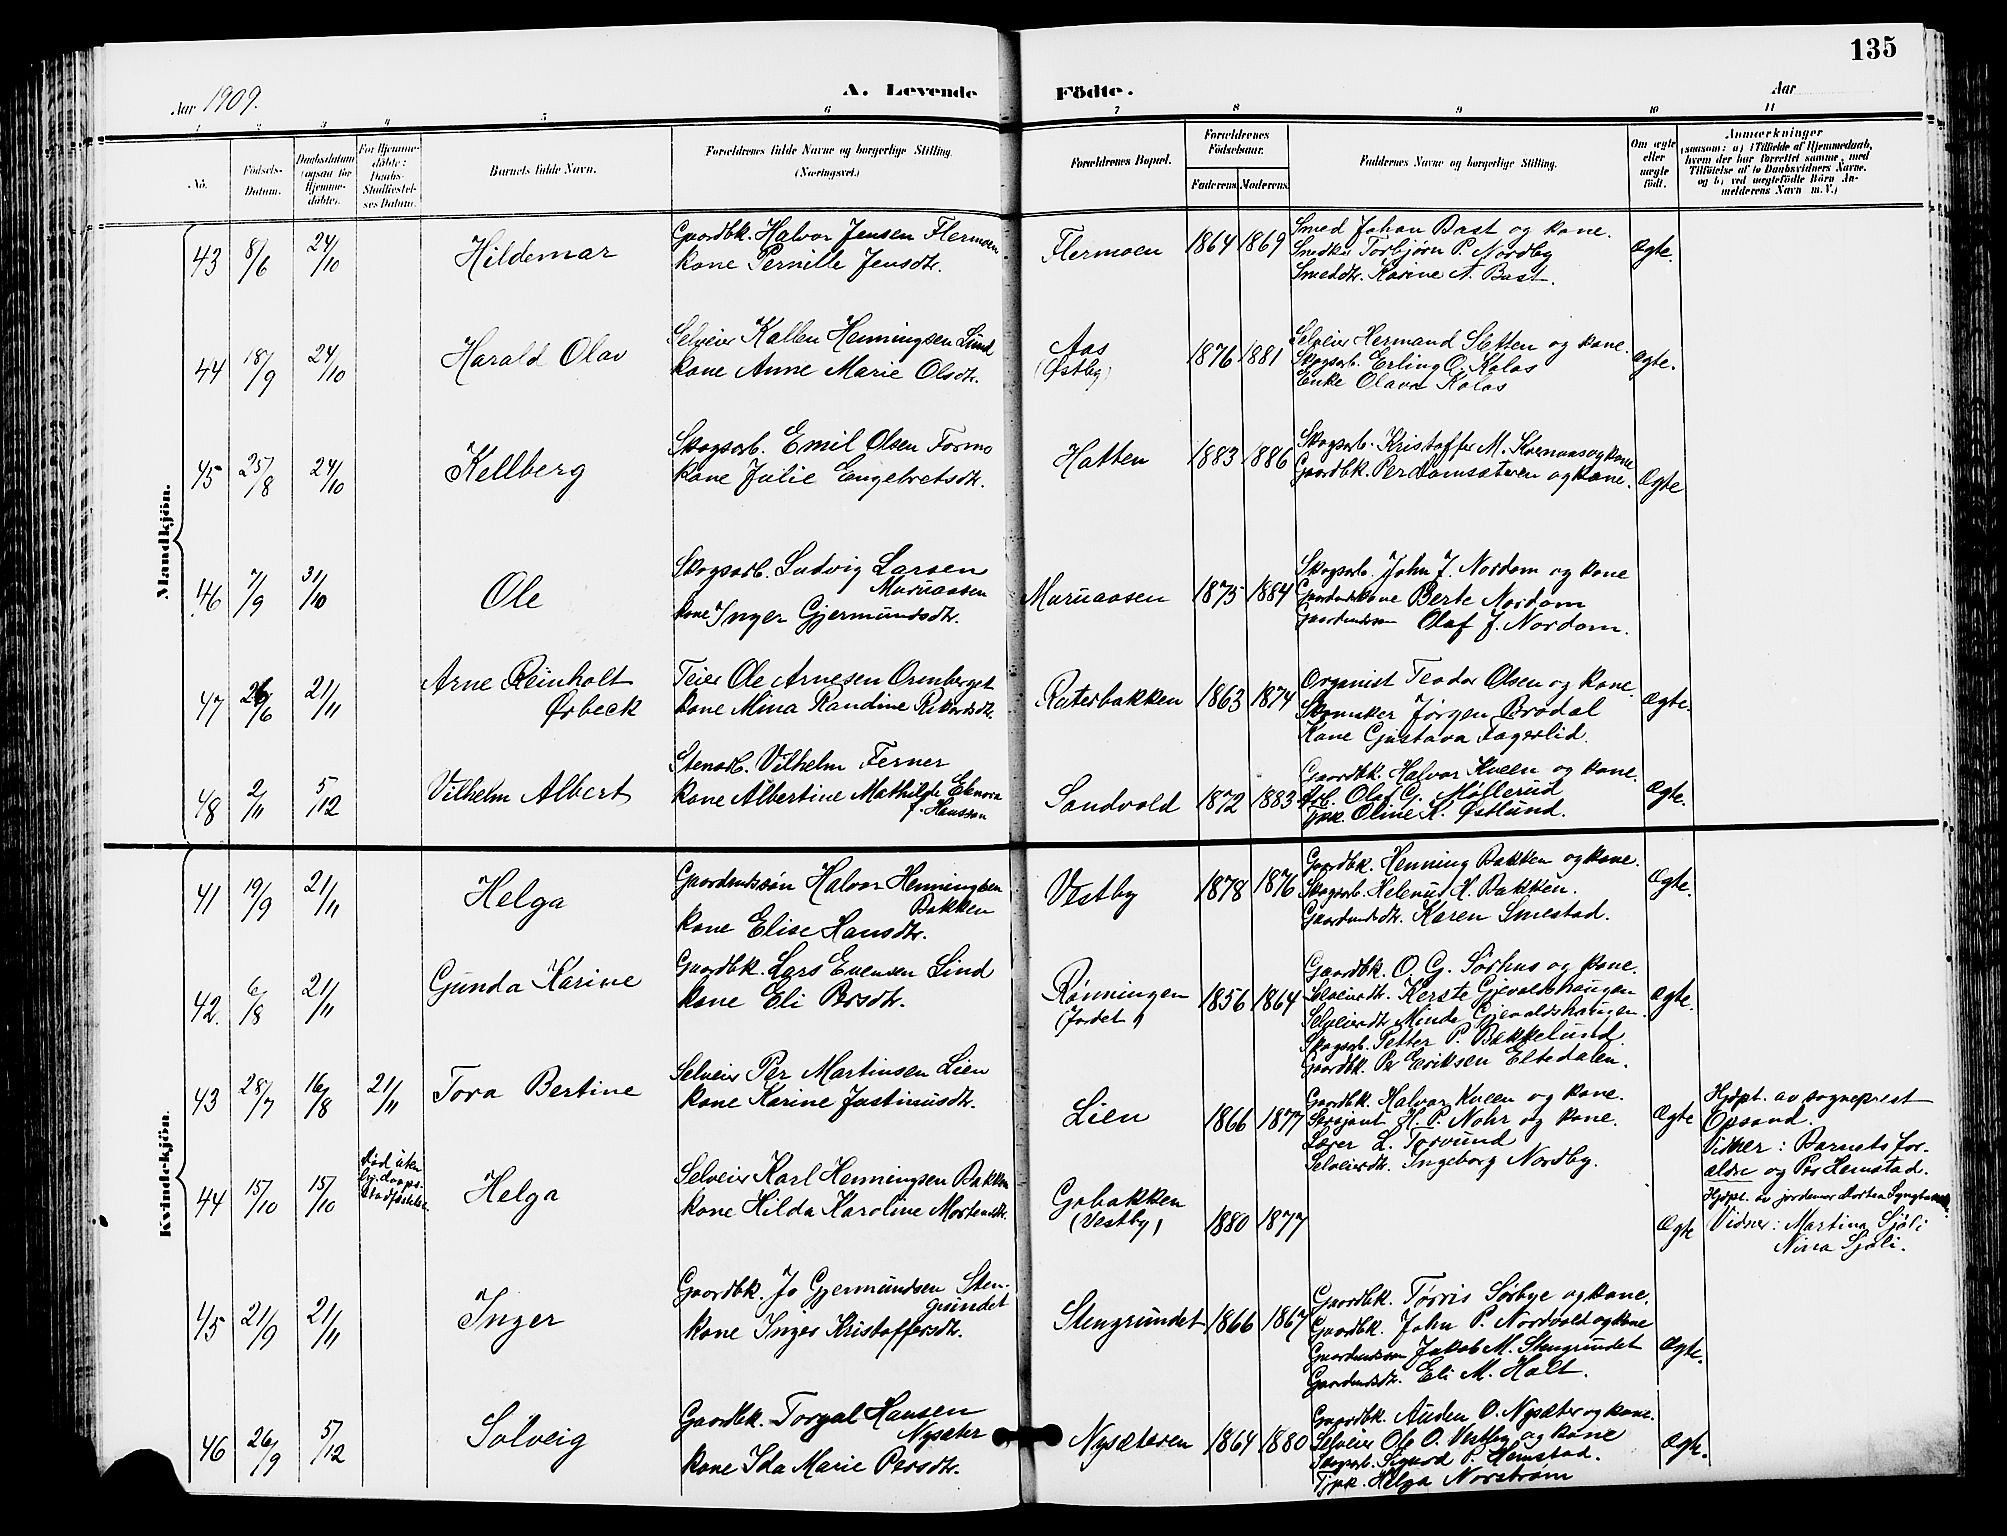 135
Aar 1909.
A. Levende Födte.
Aar
1 2 3 4 5 6 7 8 9 10 11
No.
Födsels-Datum.
Daabsdatum (ogsaa for Hjemme-döbte).
For Hjemme-döbte: Daabs-Stadfæstelses Datum.
Barnets fulde Navn.
Forældrenes fulde Navne og borgerlige Stilling.
(Næringsvei.)
Forældrenes Bopæl.
Forældrenes Födselsaar.
Faderens. Moderens.
Faddernes Navne og borgerlige Stilling.
Om ægte eller uægte födt.
Anmærkninger
(saasom: a) i Tilfælde af Hjemmedaab,
hvem der har forrettet samme, med
Tilföielse af to Daabsvidners Navne.
og b) ved uægtefödte Börn An-
melderens Navn m. V.)
Mandkjön.
43 8/6 24/10 Hildemar
Gaardbk. Halvor Jensen Flermoen
kone Pernille Jensdtr.
Flermoen 1864 1869
Smed Johan Bast og kone.
Torbjørn P. Nordby
Smeddtr. Karine A. Bast.
Ægte.
44 18/9 24/10 Harald Olav
Selveier Kallen Henningsen Lund
kone Anne Marie Olsdtr.
Aas
(Østby)
1876 1881
Selveier Hermand Sletten og kone.
Skogsarb. Erling O. Kolos
Enke Olava Kolos
Ægte.
45 25/8 24/10 Kellberg
Skogsarb. Emil Olsen Formo
kone Julie Engebretsdtr.
Hatten 1883 1886
Skogsarb. Kristoffer M. Kvernaas og kone
Gaardbk. Per Lomsæteren og kone.
Ægte
46 7/9 31/10 Ole
Skogsarb. Ludvig Larsen
Muruaasen
kone Inger Gjermundsdtr.
Muruaasen 1875 1884
Skogsarb. John J. Nordom og kone
Berte Nordom
Olaf J. Nordom.
47 26/6 21/11 Arne Reinholt
Ørbeck
Teier Ole Arnesen Ormberget
kone Mina Randine Rikardsdtr.
Raterbakken 1863 1874
Organist Teodor Olsen og kone.
Jørgen Brodal
Kone Gustava Fagerlid.
Ægte.
48 2/11 5/12 Vilhelm Albert
Stenarb. Vilhelm Ferner
kone Albertine Mathilde Elenora
f. Hansson
Sandvold 1872 1883
Gaardbk. Halvor Kveen og kone.
Arb. Olaf G. Møllerud
Tjpk. Oline K. Østlund.
Ægte.
Kvindekjön.
41 19/9 21/11 Helga
Gaardmdssøn Halvor Henningsen
Bakken
kone Elise Hansdtr.
Vestby 1878 1876
Gaardbk. Henning Bakken og kone.
Skogsarb. Helenus H. Bakken.
Gaardmdsdtr. Karen Smestad.
Ægte.
42. 6/8 21/11 Gunda Karine
Gaardbk. Lars Evensen Lind
kone Eli Persdtr.
Rønningen
(Jordet)
1856 1864
Gaardbk. O. G. Sørhus og kone.
Selveierdtr. Kerste Gjevaldshaugen
Selveierdtr. Minda Gjevaldshaugen.
Skogsarb. Petter P. Bækkelund.
Gaardbk. Per Eriksen Eltedalen.
Ægte.
43 28/7 16/8 21/11 Tora Bertine
Selveier Per Martinsen Lien
kone Karine Justinusdtr.
Lien 1866 1877
Gaardbk. Halvor Kveen og kone.
Sersjant H. P. Nohr og kone.
Lærer L. Torvund
Selveierdtr. Ingeborg Nordby.
Ægte
Hjdpt. av sogneprest
Opsand.
Vidner: Barnets for-
ældre og Per Hemstad.
44 15/10 15/10
Død uten
daaps-
stadfæstelse
Helga
Selveier Karl Henningsen Bakken
kone Hilda Karoline Mortensdtr.
Gobakken
(Vestby)
1880 1877
Ægte
Hjdpt. av jordemor
Vidner: Martina Sjøli
Nina Sjøli.
45 21/9 21/11 Inger
Gaardbk. Jo Gjermundsen Sten-
grundet
kone Inger Kristoffersdtr.
Stengrundet 1866 1867
Gaardbk. Torris Sørbye og kone.
Gaardbk. John P. Nordvold og kone
Gaardmdssøn Jakob M. Stengrundet
Gaardmdsdtr. Eli M. Holt.
Ægte.
46 26/9 5/12 Solveig
Gaardbk. Torgal Hansen
Nysæter
kone Ida Marie Persdtr.
Nysæteren 1864 1880
Gaardbk. Auden O. Nysæter og kone.
Selveier Ole O. Vestby og kone
Skogsarb. Sigurd P. Hemstad.
Tjpk. Helga Norstrøm
Ægte.